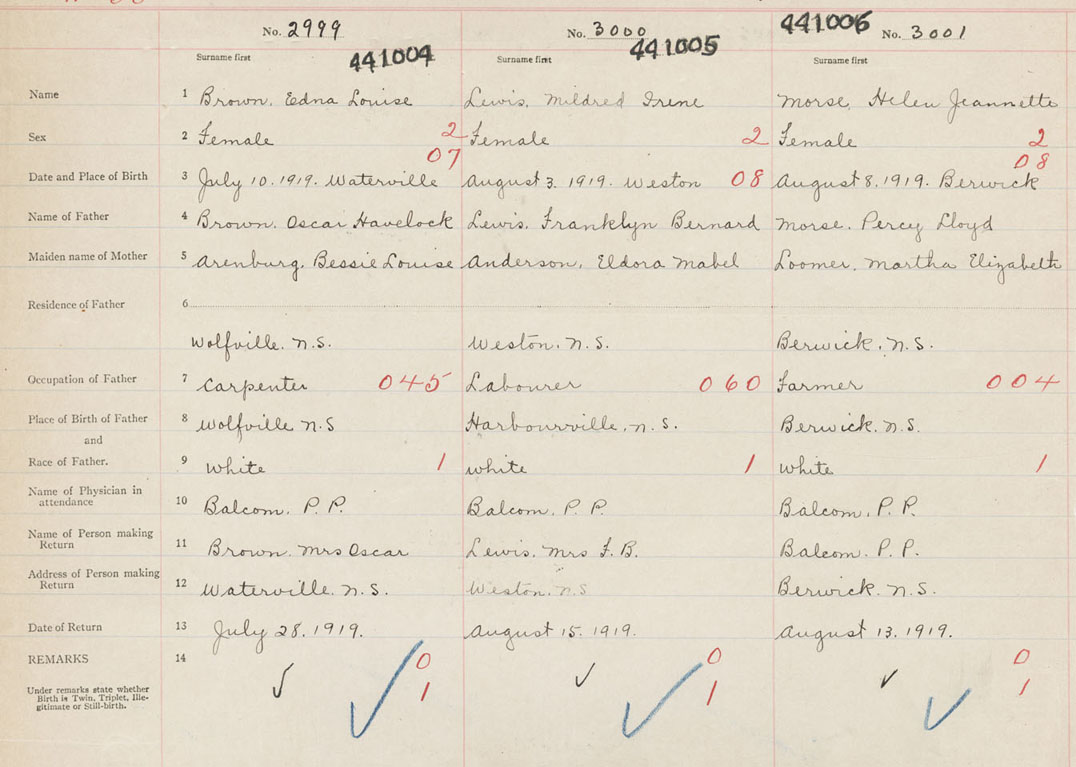 No. 2999 No. 3000 441006 No. 3001
Surname first 441004 Surname first 441005 Surname first
Name 1 Brown, Edna Louise Lewis, Mildred Irene Morse, Helen Jeannette
Sex 2 Female 2 Female 2 Female 2
07 08
Date and Place of Birth 3 July 10. 1919. Waterville August 3. 1919. Weston 08 August 8. 1919. Berwick
Name of Father 4 Brown, Oscar Havelock Lewis, Franklyn Bernard Morse, Percy Lloyd
Maiden name of Mother 5 Arenburg, Bessie Louise Anderson, Eldora Mabel Loomer, Martha Elizabeth
Residence of Father 6
Wolfville. N.S. Weston, N.S. Berwick, N.S.
Occupation of Father 7 Carpenter 045 Labourer 060 Farmer 004
Place of Birth of Father 8 Wolfville N.S Harbourville, N.S. Berwick. N.S.
and
Race of Father. 9 White 1 White 1 White 1
Name of Physician in
attendance 10 Balcom, P. P. Balcom, P. P. Balcom, P. P.
Name of Person making
Return 11 Brown, Mrs Oscar Lewis, Mrs F. B. Balcom. P. P.
Address of Person making
Return 12 Waterville. N.S. Weston. N.S Berwick. N.S.
Date of Return 13 July 28. 1919. August 15. 1919. August 13. 1919.
REMARKS 14 0 0 0
Under remarks state whether
Birth is Twin, Triplet, Ille-
gitimate or Still-birth. 1 1 1